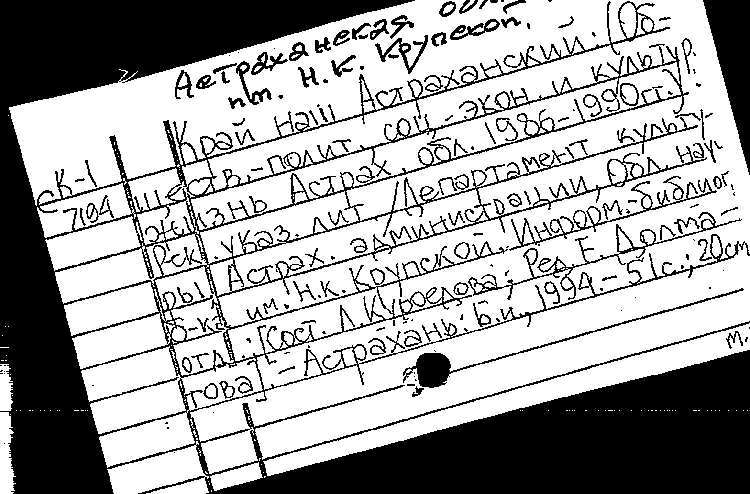 Астраханская обл
пт. Н.К. Крупской.
Край наш Астраханский: (Об-
ществ.-полит., соц.-экон. и культур.
жизнь Астрах. обл. 1986-1990гг.):
Рек. указ. лит. / Департамент культу-
ры Астрах. администрации, Обл. науч.
б-ка им. Н.К. Крупской, Информ.-библиогр.
отд.; [Сост. Л. Куроедова; Ред. Е. Долма-
това]. - Астрахань: Б.и., 1994. - 51с.; 20см
СК-1
7194
т.